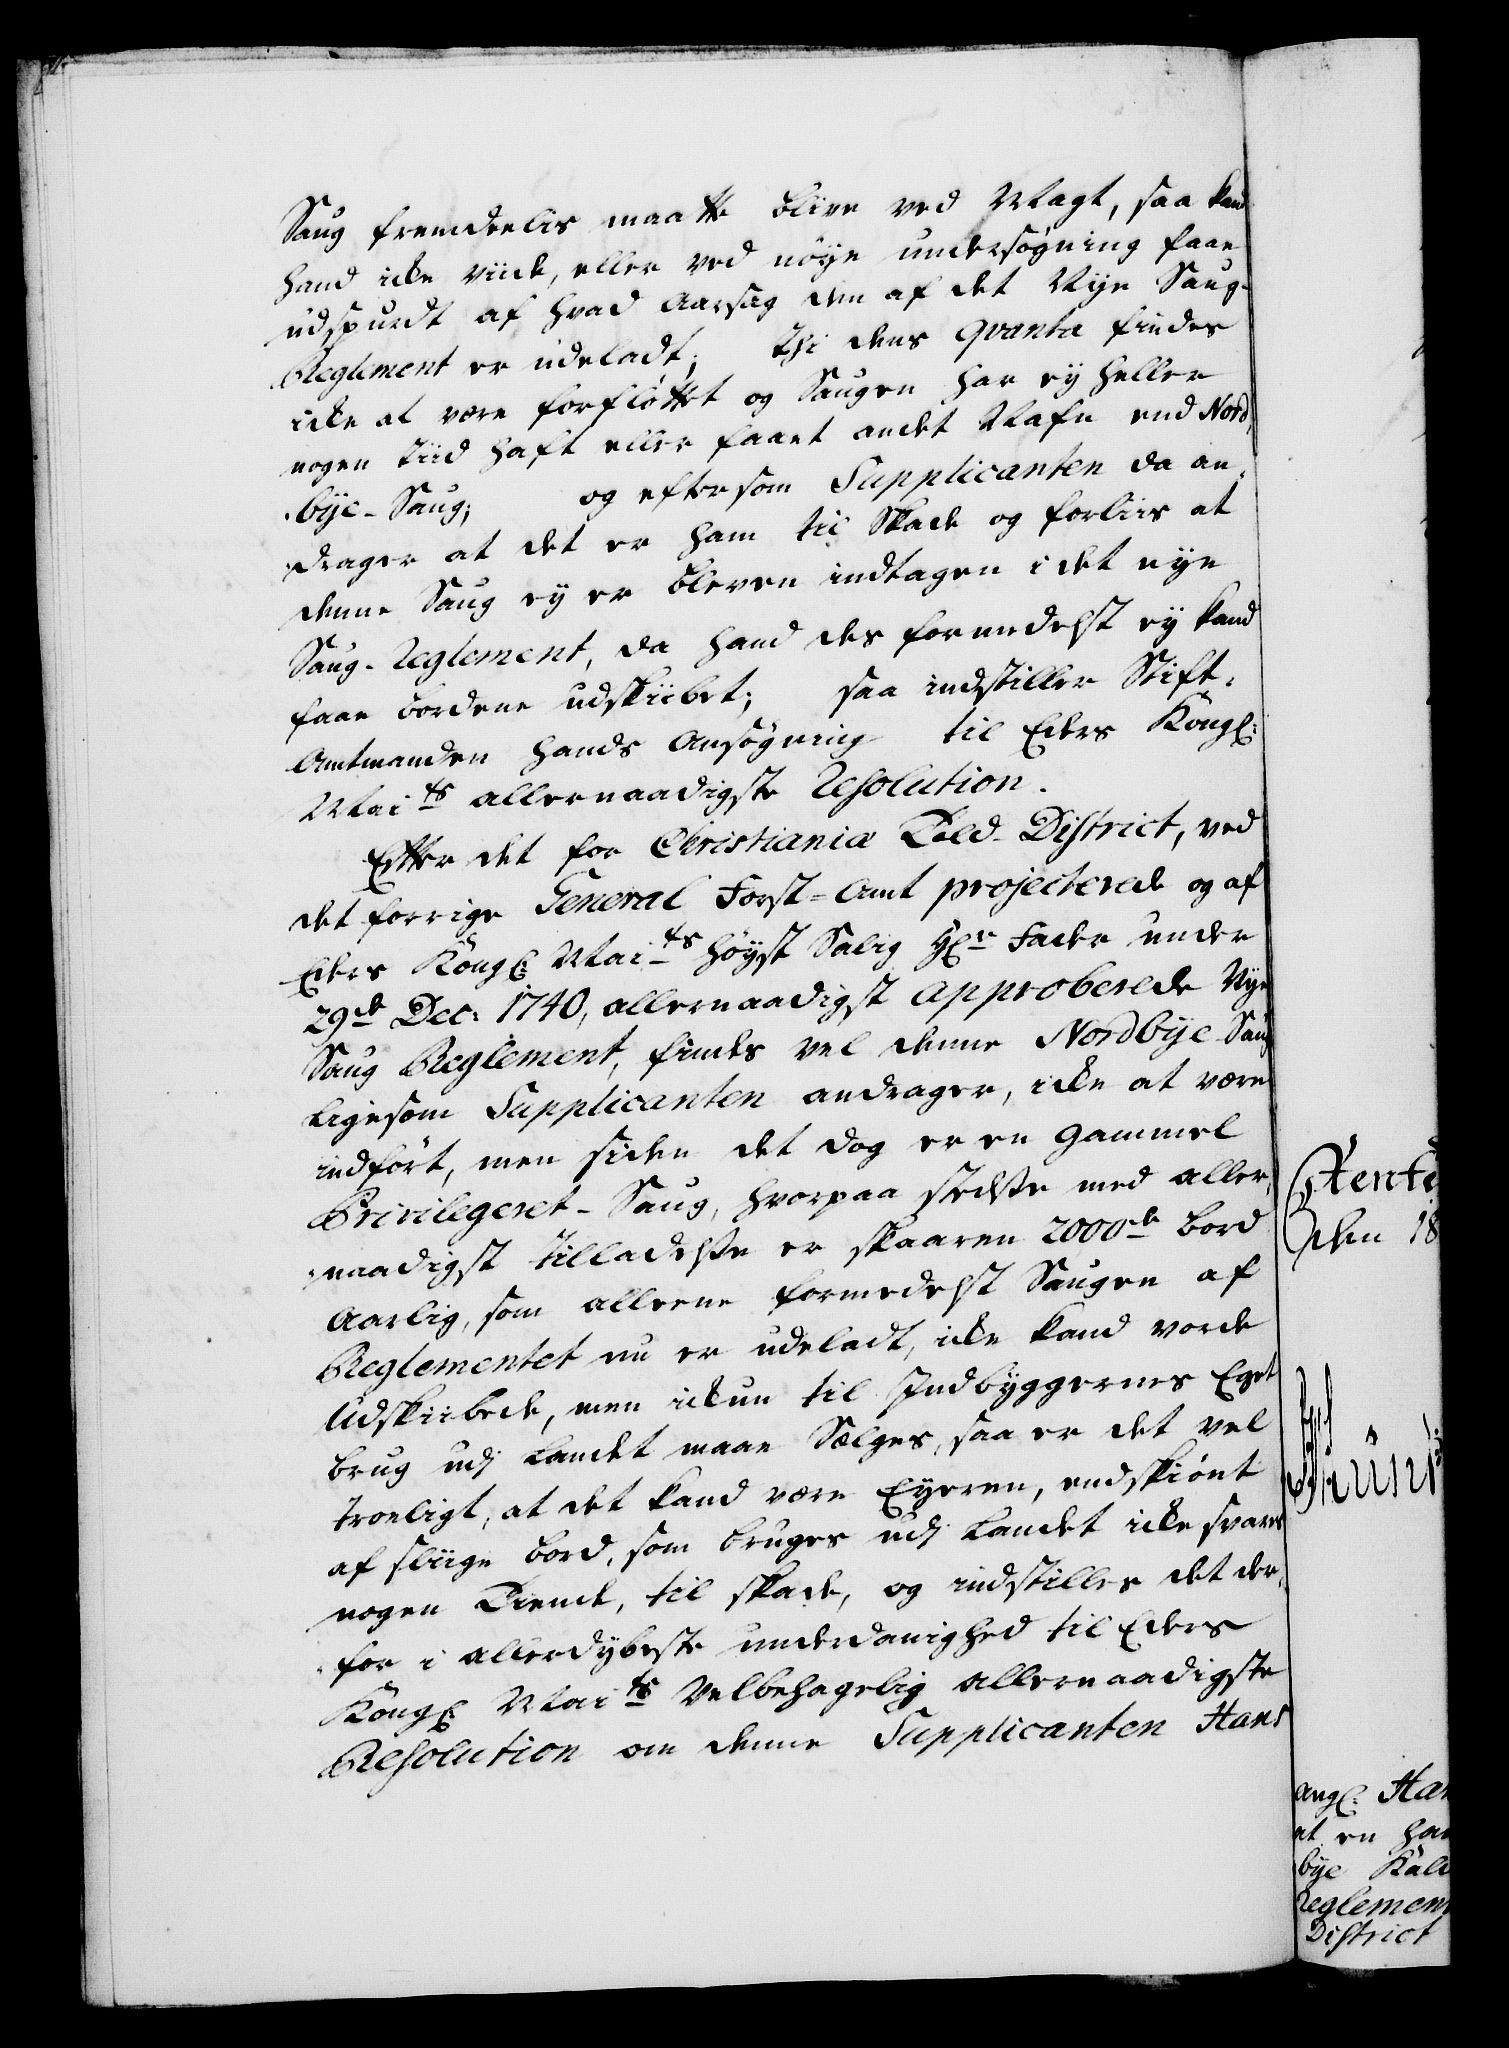 Saug fremdeelis maatte blive ved Magt, saa kand
hand icke viide, eller ved nöye undersögning faae
udspurdt af hvad Aarsag den af det Nye Saug-
Reglement er udeladt; thi dens qvanta findes
icke at være forfløttet og Saugen har ey heller
nogen Tiid haft eller faaet andet Nafn end Nord-
bye-Saug; og eftersom Supplicanten da an-
drager at det er ham til Skade og forliis at
denne Saug ey er bleven indtagen i det nye
Saug-Reglement, da hand des formedelst ey kand
faae bordene udskiibet; saa indstiller Stift-
Amtmanden hands Ansøgning til Eders Kongl:
Maits allernaadigste Resolution.
Efter det for Christiania Told-District, ved
det forrige General Forst-Amt projecterede og af
Eders Kongl: Maits höyst Salig Hr Fader under
29de Dec: 1740, allernaadigst approberede Nye
Saug Reglement, findes vel denne Nordbye-Saug
ligesom Supplicanten andrager, icke at være
indført, men siden det dog er en Gammel
Privilegeret-Saug, hvorpaa stedse med aller-
naadigst tilladelse er skaaren 2000de bord
Aarlig, som alleene formedelst Saugen af
Reglementet nu er udeladt, icke kand vorde
Udskiibede, men ickun til Indbyggernes Eget
brug udj Landet maae Sælges, saa er det vel
troeligt, at det kand være Eyeren, endskiönt
af sliige bord, som bruges udj Landet icke svares
nogen Tiende, til skade, og indstilles det der-
for i allerdybeste underdanighed til Eders
Kongl: Maits Velbehagelig allernaadigste
Resolution om denne Supplicanten Hans
Rente
den 18
angl: Han
at en ha
bye Kal
Reglemen
District